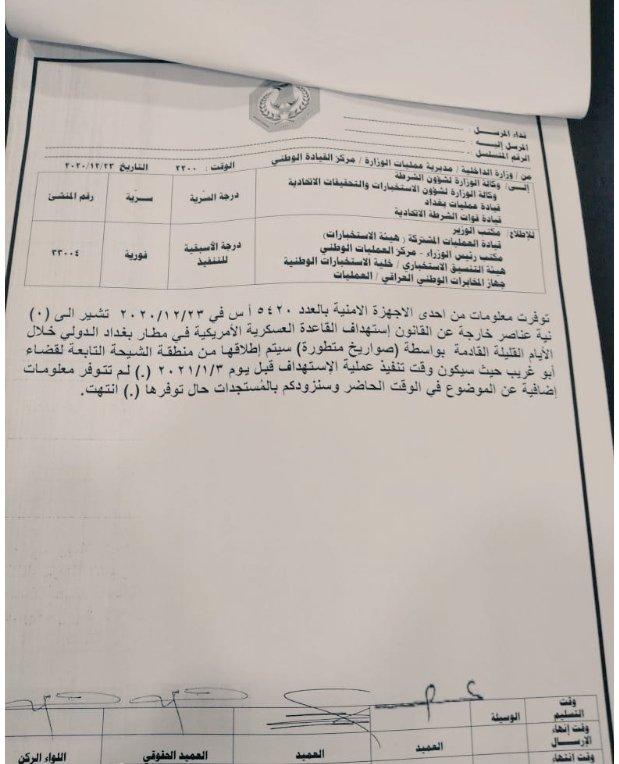 نداء المرسل :
المرسل إليه :
الرقم المتسلسل :
من / وزارة الداخلية / مديرية عمليات الوزارة / مركز القيادة الوطني الوقت : ٢٢٠٠ التاريخ ٢٠٢٠/١٢/٢٣
إلى / وكالة الوزارة لشؤون الشرطة
وكالة الوزارة لشؤون الاستخبارات والتحقيقات الاتحادية
قيادة عمليات بغداد
قيادة قوات الشرطة الاتحادية
درجة السرية سرية رقم المنشئ
للإطلاع / مكتب الوزير
قيادة العمليات المشتركة (هيئة الاستخبارات)
مكتب رئيس الوزراء - مركز العمليات الوطني
هيئة التنسيق الاستخباري / خلية الاستخبارات الوطنية
جهاز المخابرات الوطني العراقي / العمليات
درجة الأسبقية للتنفيذ فورية ٣٣٠٠٤
توفرت معلومات من احدى الاجهزة الامنية بالعدد ٥٤٢٠ أ س في ٢٠٢٠/١٢/٢٣ تشير الى (٠)
نية عناصر خارجة عن القانون إستهداف القاعدة العسكرية الأمريكية في مطار بغداد الدولي خلال
الأيام القليلة القادمة بواسطة (صواريخ متطورة) سيتم إطلاقها من منطقة الشيحة التابعة لقضاء
أبو غريب حيث سيكون وقت تنفيذ عملية الإستهداف قبل يوم ٢٠٢١/١/٣ (.) لم تتوفر معلومات
إضافية عن الموضوع في الوقت الحاضر وسنزودكم بالمُستجدات حال توفرها (.) انتهت.
وقت التسليم الوسيلة
وقت إنهاء الإرسال
العميد العميد العميد الحقوقي اللواء الركن